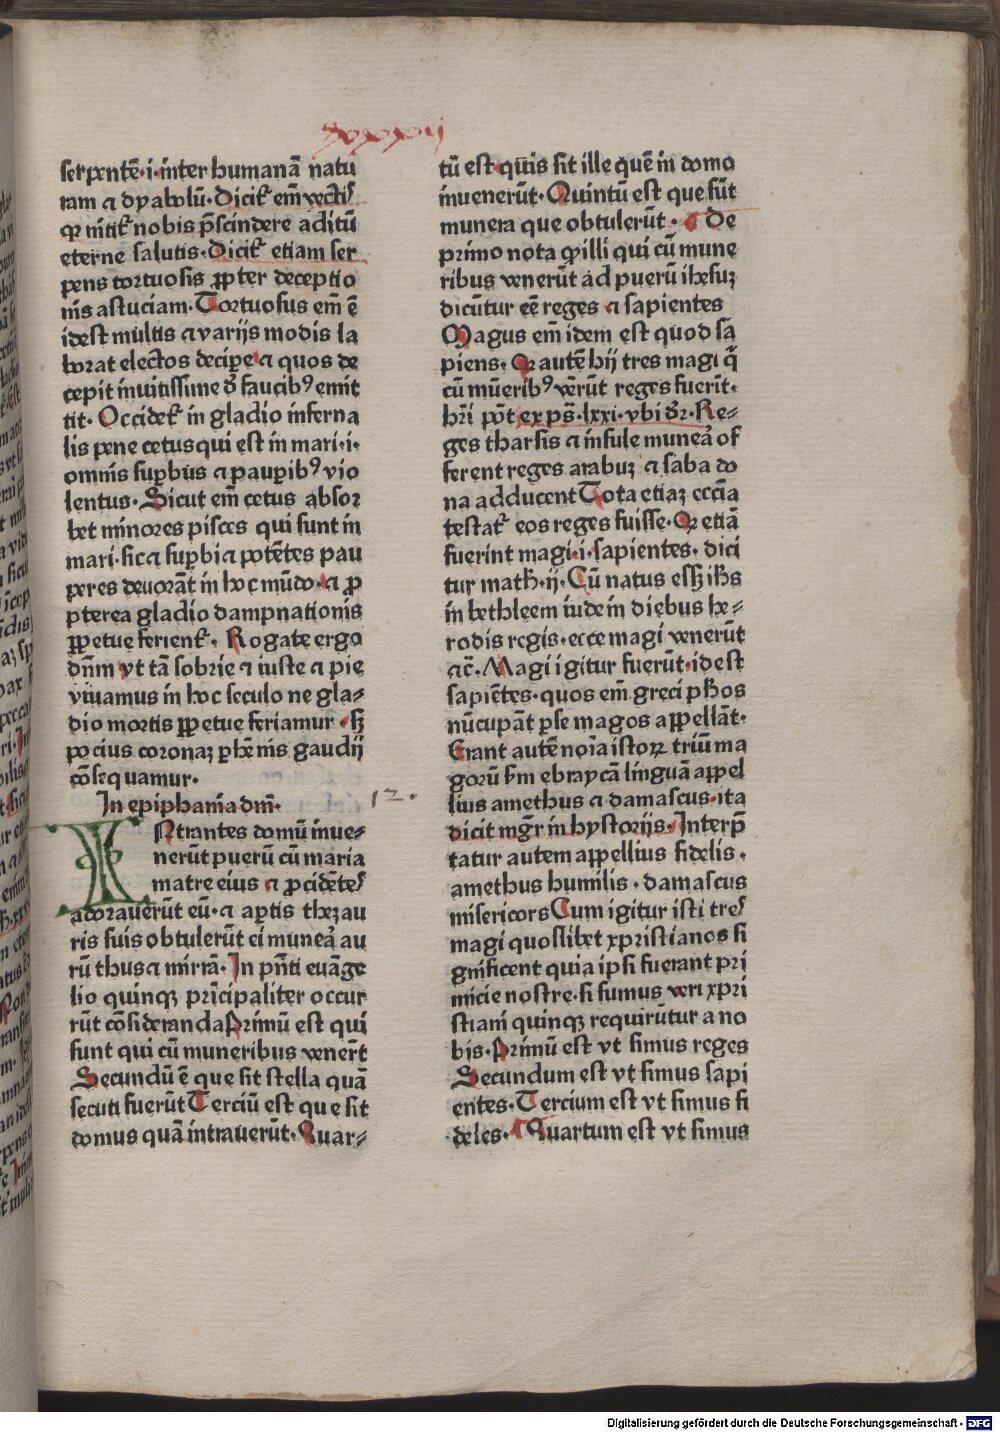 xxxxij
serpentē·i·inter humanā natu
ram ⁊ dyabolū· Dicit᷑ em̄ vectis
qꝛ nītit᷑ nobis p̄scindere aditū
eterne salutis· Dicit᷑ etiam ser
pens tortuosis ꝓpter deceptio
nis astuciam· Tortuosus em̄ ē
idest multis ⁊ varijs modis la
borat electos deciꝑe ⁊ quos de
cepit inuitissime de faucibꝰ emit
tit· Occidet᷑ in gladio inferna
lis pene cetus qui est in mari·i·
omnis suꝑbus ⁊ pauꝑibꝰ vio
lentus· Sicut em̄ cetus absor
bet minores pisces qui sunt in
mari· sic ⁊ suꝑbi ⁊ potētes pau
peres deuorāt in hoc mūdo· ⁊ ꝓ
pterea gladio dampnationis
ꝑpetue ferient᷑· Rogate ergo
dn̄m vt tā sobrie ⁊ iuste ⁊ pie
viuamus in hoc seculo ne gla⸗
dio mortis ꝑpetue feriamur· sꝫ
pocius coronaꝫ ꝑhēnis gaudij
cōsequamur·
In epiphania dm̄·
12·
INtrantes domū inue⸗
nerūt puerū cū maria
matre eius ⁊ ꝓcidētes
adorauerūt eū· ⁊ aꝑtis thezau
ris suis obtulerūt ei munera au
rū thus ⁊ mirrā· In pn̄ti euāge
lio quinqꝫ prīcipaliter occur
rūt cōsideranda Primū est qui
sunt qui cū muneribus venerūt
Secundū ē que sit stella quā
secuti fuerūt Terciū est que sit
domus quā intrauerūt· Quar⸗
tū est qūis sit ille quē in domo
inuenerūt· Quintū est que sūt
munera que obtulerūt· De
primo nota ꝙ illi qui cū mune
ribus venerūt ad puerū ihesuꝫ
dicūtur eē reges ⁊ sapientes
Magus em̄ idem est quod sa
piens· Qꝛ autē hij tres magi q̄
cū mūeribꝰ vēerūt reges fuerīt·
hr̄i pōt ex ps̄·lxxi·vbi dr̄· Re⸗
ges tharsis ⁊ insule munera of
ferent reges arabuꝫ ⁊ saba do
na adducent Tota etiaꝫ eccīa
testat᷑ eos reges fuisse· Qꝛ etiā
fuerint magi·i·sapientes· dici
tur math·ij· Cū natus essꝫ ihs̄
in bethleem iude in diebus he⸗
rodis regis· ecce magi venerūt
⁊c̄· Magi igitur fuerūt· idest
sapiētes· quos em̄ greci ph̄os
nūcupāt ꝑse magos appellāt·
Erant autē noīa istoꝝ triū ma
gorū ẜm ebraycā linguā appel
lius amethus ⁊ damascus· ita
dicit mgr̄ in hystorijs· Interp̄
tatur autem appellius fidelis·
amethus humilis· damascus
misericors Cum igitur isti tres
magi quoslibet xpristianos si
gnificent quia ipsi fuerant pri
micie nostre· si sumus veri xpri
stiani quinqꝫ requirūtur a no
bis· Primū est vt simus reges
Secundum est vt simus sapi
entes· Tercium est vt simus fi
deles· Quartum est vt simus
Digitalisierung gefördert durch die Deutsche Forschungsgemeinschaft - DFG